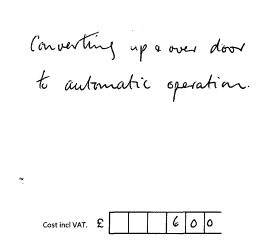 Converting up & over door
to automatic operation.
Cost incl VAT. £ 600